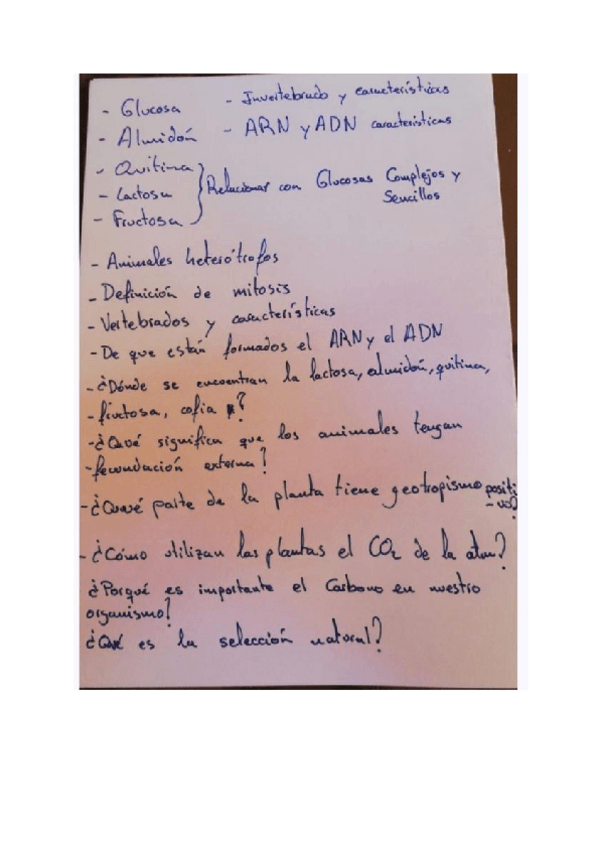 - Glucosa
- Invertebrado y características
- Almidón
- ARN y ADN características
- Quitina
- Lactosa
- Fructosa
Relacionar con Glucosas Complejos y
Sencillos
- Animales heterótrofos
- Definición de mitosis
- Vertebrados y características
- De que están formados el ARN y el ADN
- ¿Dónde se encuentran la lactosa, almidón, quitina,
- fructosa, cofia ?
- ¿Qué significa que los animales tengan
- fecundación externa?
- ¿Que parte de la planta tiene geotropismo positi
- vo?
- ¿Cómo utilizan las plantas el CO₂ de la atm?
¿Porqué es importante el Carbono en nuestro
organismo?
¿Qué es la selección natural?